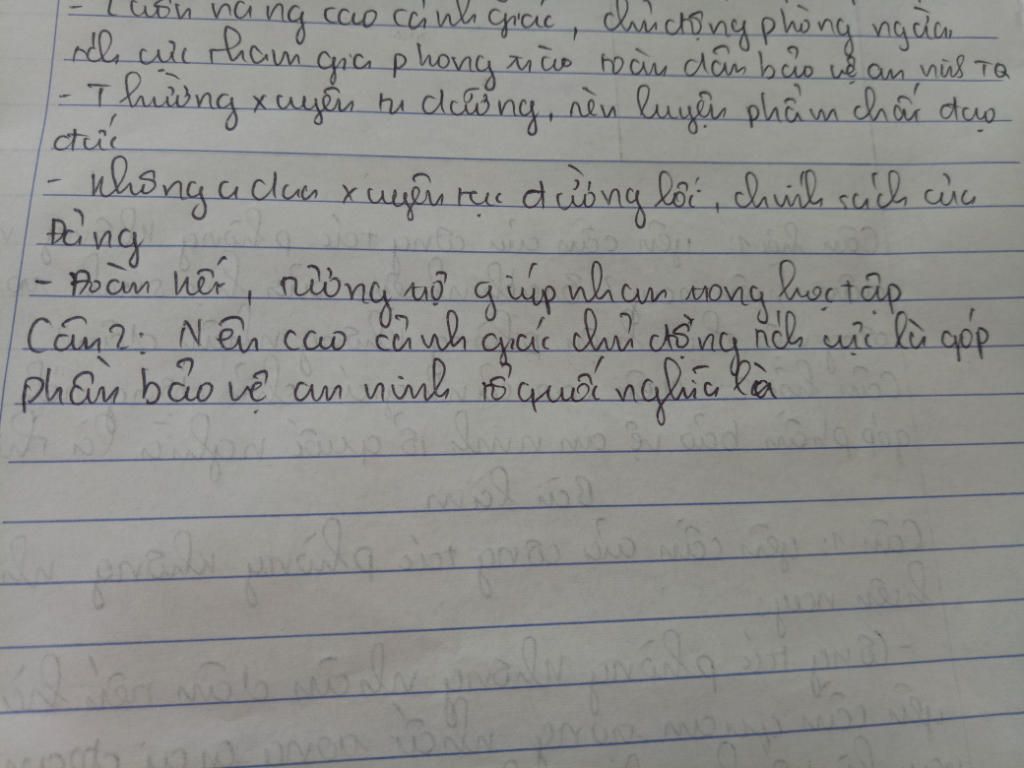 - Luôn nâng cao cảnh giác, chủ động phòng ngừa
tích cực tham gia phong trào toàn dân bảo vệ an ninh TQ
- Thường xuyên tu dưỡng, rèn luyện phẩm chất đạo
đức
- Không a dua xuyên tạc đường lối, chính sách của
Đảng
- Đoàn kết, tương trợ giúp nhau trong học tập
Câu 2: Nêu cao cảnh giác chủ động tích cực là góp
phần bảo vệ an ninh tổ quốc nghĩa là